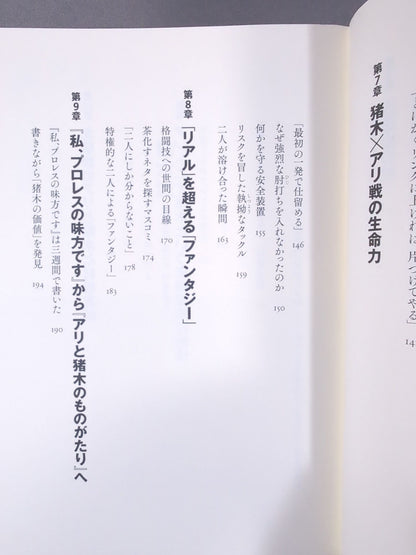 片づけてやる」
第7章 猪木×アリ戦の生命力
「最初の一発で仕留める」 146
なぜ強烈な肘打ちを入れなかったのか 150
何かを守る安全装置 155
リスクを冒した執拗なタックル 159
二人が溶け合った瞬間 163
第8章 「リアル」を超える「ファンタジー」
格闘技への世間の目線 170
茶化すネタを探すマスコミ 174
「二人にしか分からないこと」 178
特権的な二人による「ファンタジー」 183
第9章 『私、プロレスの味方です』から『アリと猪木のものがたり』へ
『私、プロレスの味方です』は三週間で書いた 190
書きながら「猪木の価値」を発見 194